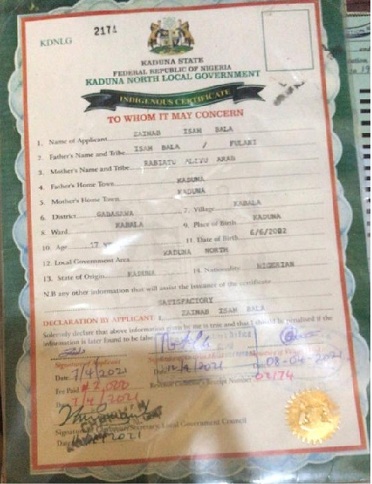 KDNLG 2171
KADUNA STATE
FEDERAL REPUBLIC OF NIGERIA
KADUNA NORTH LOCAL GOVERNMENT
INDIGENOUS CERTIFICATE
TO WHOM IT MAY CONCERN
1. Name of Applicant ZAINAB ISAH BALA
2. Father's Name and Tribe ISAH BALA / FULANI
3. Mother's Name and Tribe RABIATU ALIYU ARAB
4. Father's Home Town KADUNA
5. Mother's Home Town KADUNA
6. District GABASAWA 7. Village KABALA
8. Ward KABALA 9. Place of Birth KADUNA
10. Age 17 11. Date of Birth 6/6/2002
12. Local Government Area KADUNA NORTH
13. State of Origin KADUNA 14. Nationality NIGERIAN
N.B any other information that will the issuance of the certificate
SATISFACTORY
DECLARATION BY APPLICANT I ZAINAB ISAH BALA
Solemnly declare that above information given by me is true and that I should be penalised if the
information is later found to be false
Date 7/4/2021 Date 08-04-2021
Fee Paid ₦2,000 Revenue Collector Receipt Number 03174
Date 7/4/2021
Secretary, Local Government Council
Date 2021